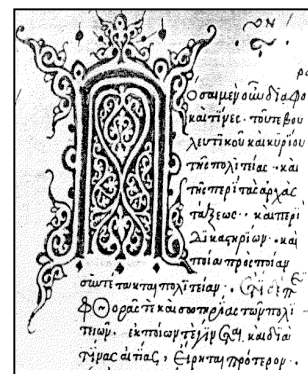 Πόσαι μὲν οὖν διαφο
καὶ τίνες· τοῦ τε βου
λευτικοῦ καὶ κυρίου
τῆς πολιτείας· καὶ
τῆς περὶ τὰς ἀρχὰς
τάξεως· καὶ περὶ
δικαστηρίων· καὶ
ποία πρὸς ποίαν
συντέτακται πολιτείαν·
φθορᾶς τε καὶ σωτηρίας τῶν πολι
τειῶν· ἐκ ποίων τε γίνεται, καὶ διὰ
τίνας αἰτίας, εἴρηται πρότερον·